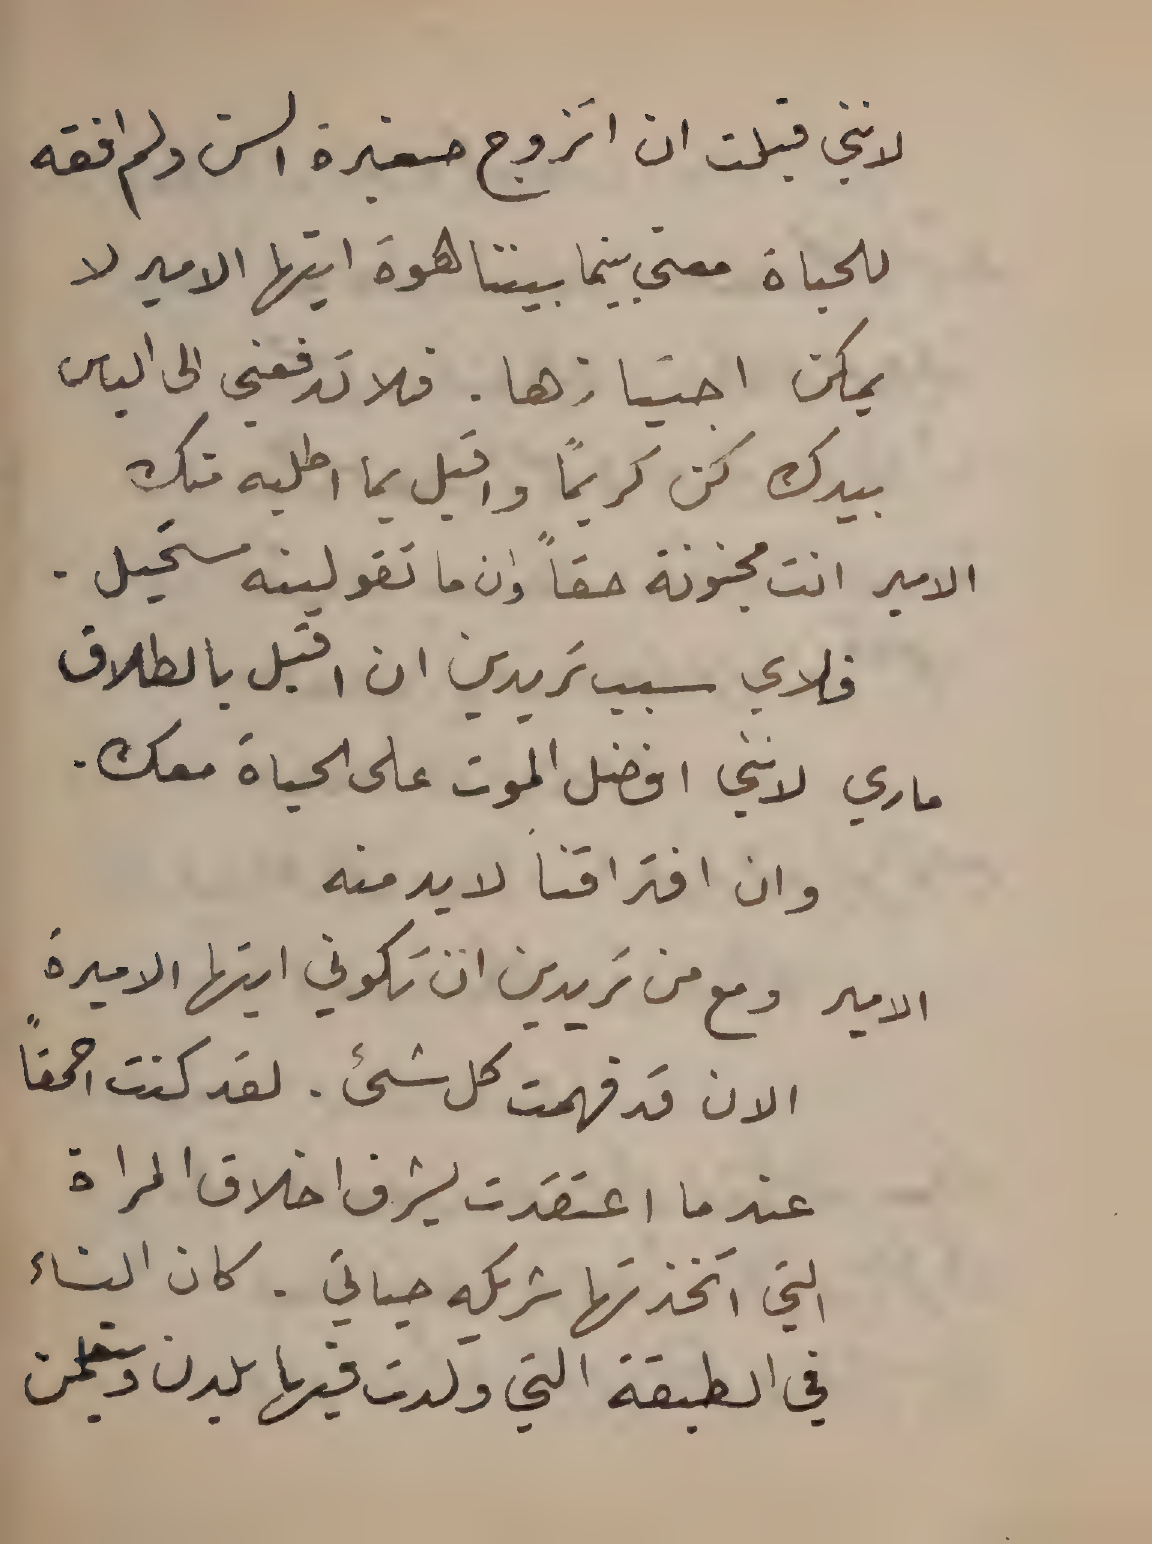 لانني قبلت ان اتزوج صغيرة السن ولم افقه
للحياة معنى بينما بيننا هوة ايتها الامير لا
يمكن اجتيازها . فلا تدفعني الى الياس
بيدك كن كريماً واقبل بما اطلبه منك
الامير انت مجنونة حقاً وان ما تقولينه مستحيل .
فلاي سبب تريدين ان اقبل بالطلاق
ماري لانني افضل الموت على الحياة معك .
وان افتراقنا لابد منه
الامير ومع من تريدين ان تكوني ايتها الاميرة
الان قد فهمت كل شئ . لقد كنت احمقاً
عندما اعتقدت بشرف اخلاق المراة
التي اتخذتها شريكه حياتي . كان النساء
في الطبقة التي ولدت فيها يلدن